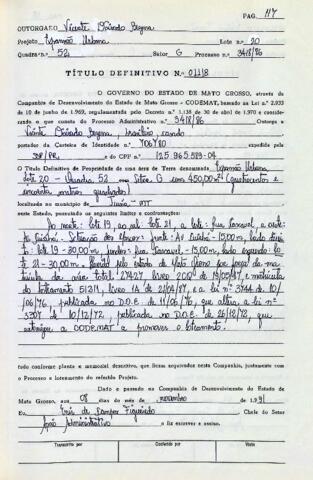 PAG. 117
OUTORGADO Vicente
Projeto Expansão Urbana Lote n.º 20
Quadra n.º 52 Setor G Processo n.º 3418/86
TÍTULO DEFINITIVO N.º 01118
O GOVERNO DO ESTADO DE MATO GROSSO, através da
Companhia de Desenvolvimento do Estado de Mato Grosso - CODEMAT, baseado na Lei n.º 2.933
de 10 de junho de 1969, regulamentada pelo Decreto n.º 1.138 de 30 de abril de 1970 e conside-
rando o que consta do Processo Administrativo n.º 3418/86 Outorga a
Vicente brasileiro, casado
portador da Carteira de Identidade n.º 706780 expedida pela
SSP/PR e do CPF n.º 125.965.589-04
O Título Definitivo de Propriedade de uma área de Terra denominada Expansão Urbana
lote 20 - Quadra 52 Setor G com 450,00 m² quatrocentos e
cinquenta metros quadrados
localizada no município de MT
neste Estado, possuindo os seguintes limites e confrontações:
Ao norte: lote 19, ao sul: lote 21, a leste: Rua a oeste:
Av. Cuiabá. frente: Av. Cuiabá - 15,00m, lado
lote 19 - 30,00m fundos: Rua - 15,00m, lado esquerdo: lo-
te 21 - 30,00m. pelo estado de Mato Grosso
da área total: 27427 livro 200 de 19/05/87, e matrícula
do loteamento 51211, livro 1A de 22/04/87, e a lei nº 3744 de 10/
06/76, publicada no D.O.E. de 11/06/76, que altera a lei nº
3307 de 10/12/72, publicada no D.O.E. de 26/12/72, que
autoriza a CODEMAT a promover o loteamento.
tudo conforme planta e memorial descritivo, que ficam arquivados nesta Companhia, juntamente com
o Processo e loteamento do referido Projeto.
Dado e passado na Companhia de Desenvolvimento do Estado de
Mato Grosso, aos 08 dias do mês de novembro de 1991
de Campos Figueiredo Chefe do Setor
Apoio Administrativo o fiz escrever e assino.
Transcrito por Conferido por Visto